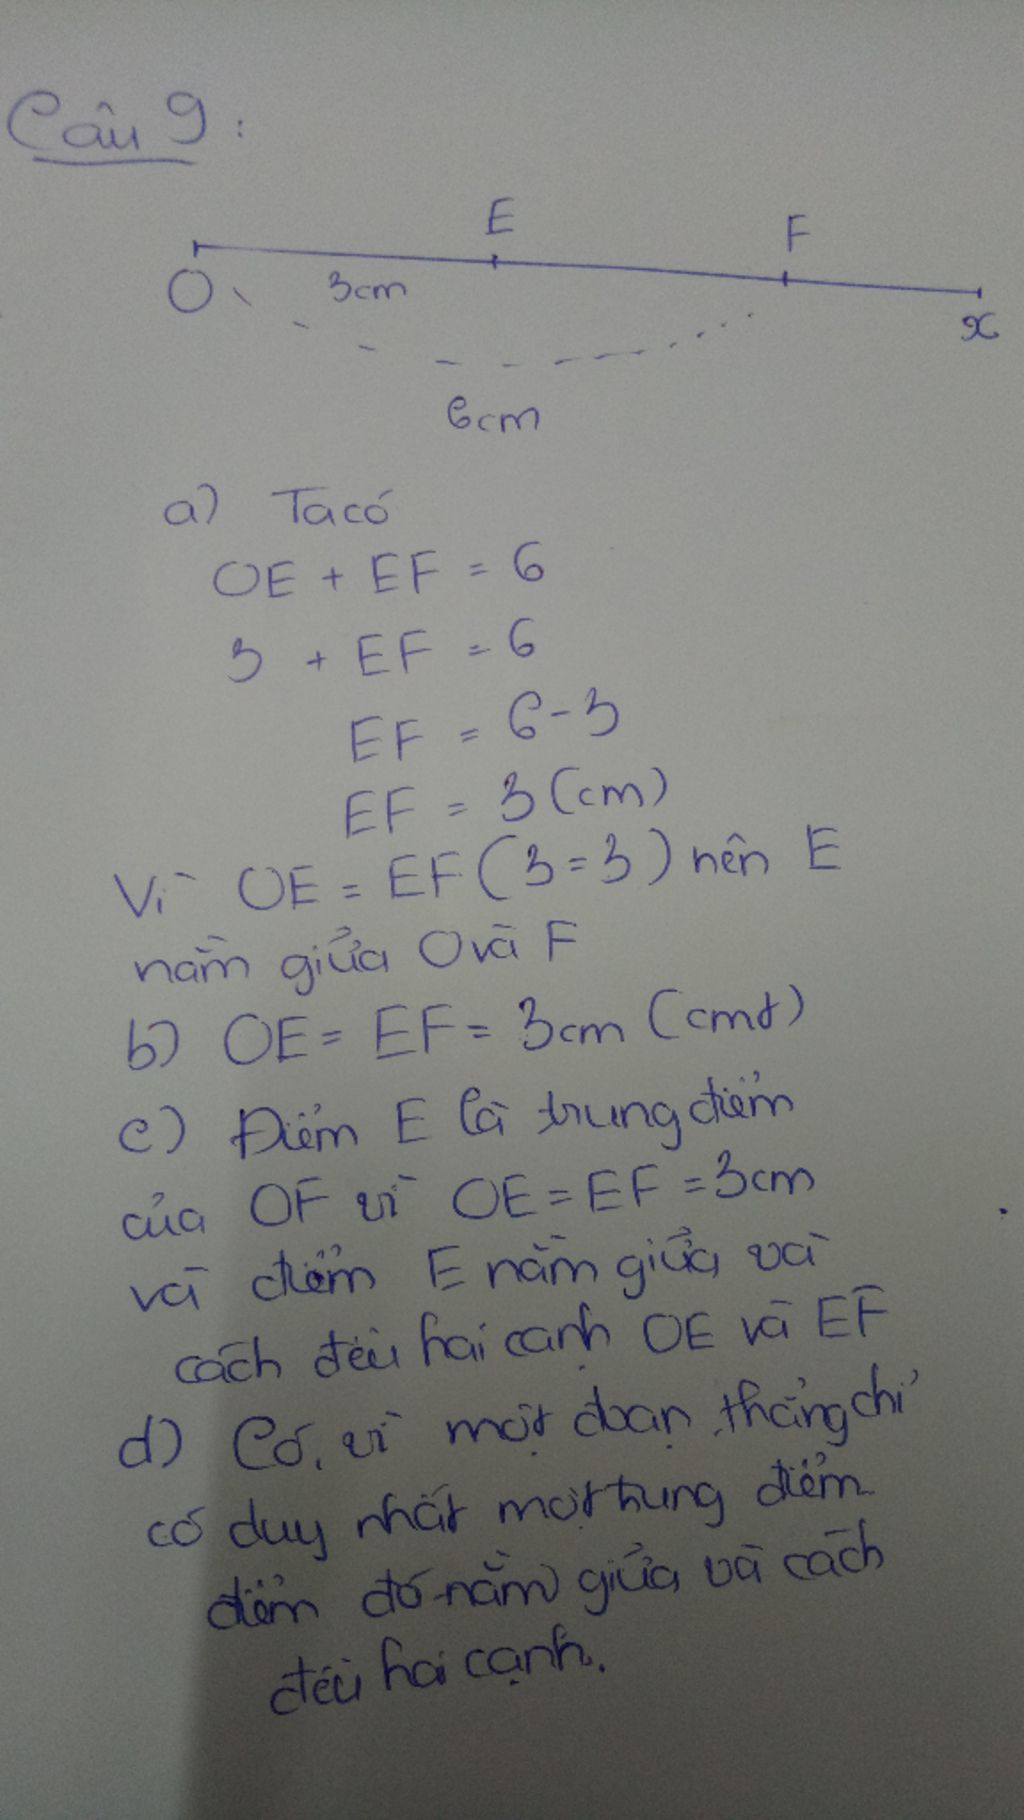 Câu 9:
E
F
O
3cm
x
6cm
a) Ta có
OE + EF = 6
3 + EF = 6
EF = 6-3
EF = 3 (cm)
Vì OE = EF (3=3) nên E
nằm giữa O và F
b) OE = EF = 3cm (cmt)
c) Điểm E là trung điểm
của OF vì OE = EF = 3cm
và điểm E nằm giữa và
cách đều hai cạnh OE và EF
d) Có, vì một đoạn thẳng chỉ
có duy nhất một trung điểm
điểm đó nằm giữa và cách
đều hai cạnh.